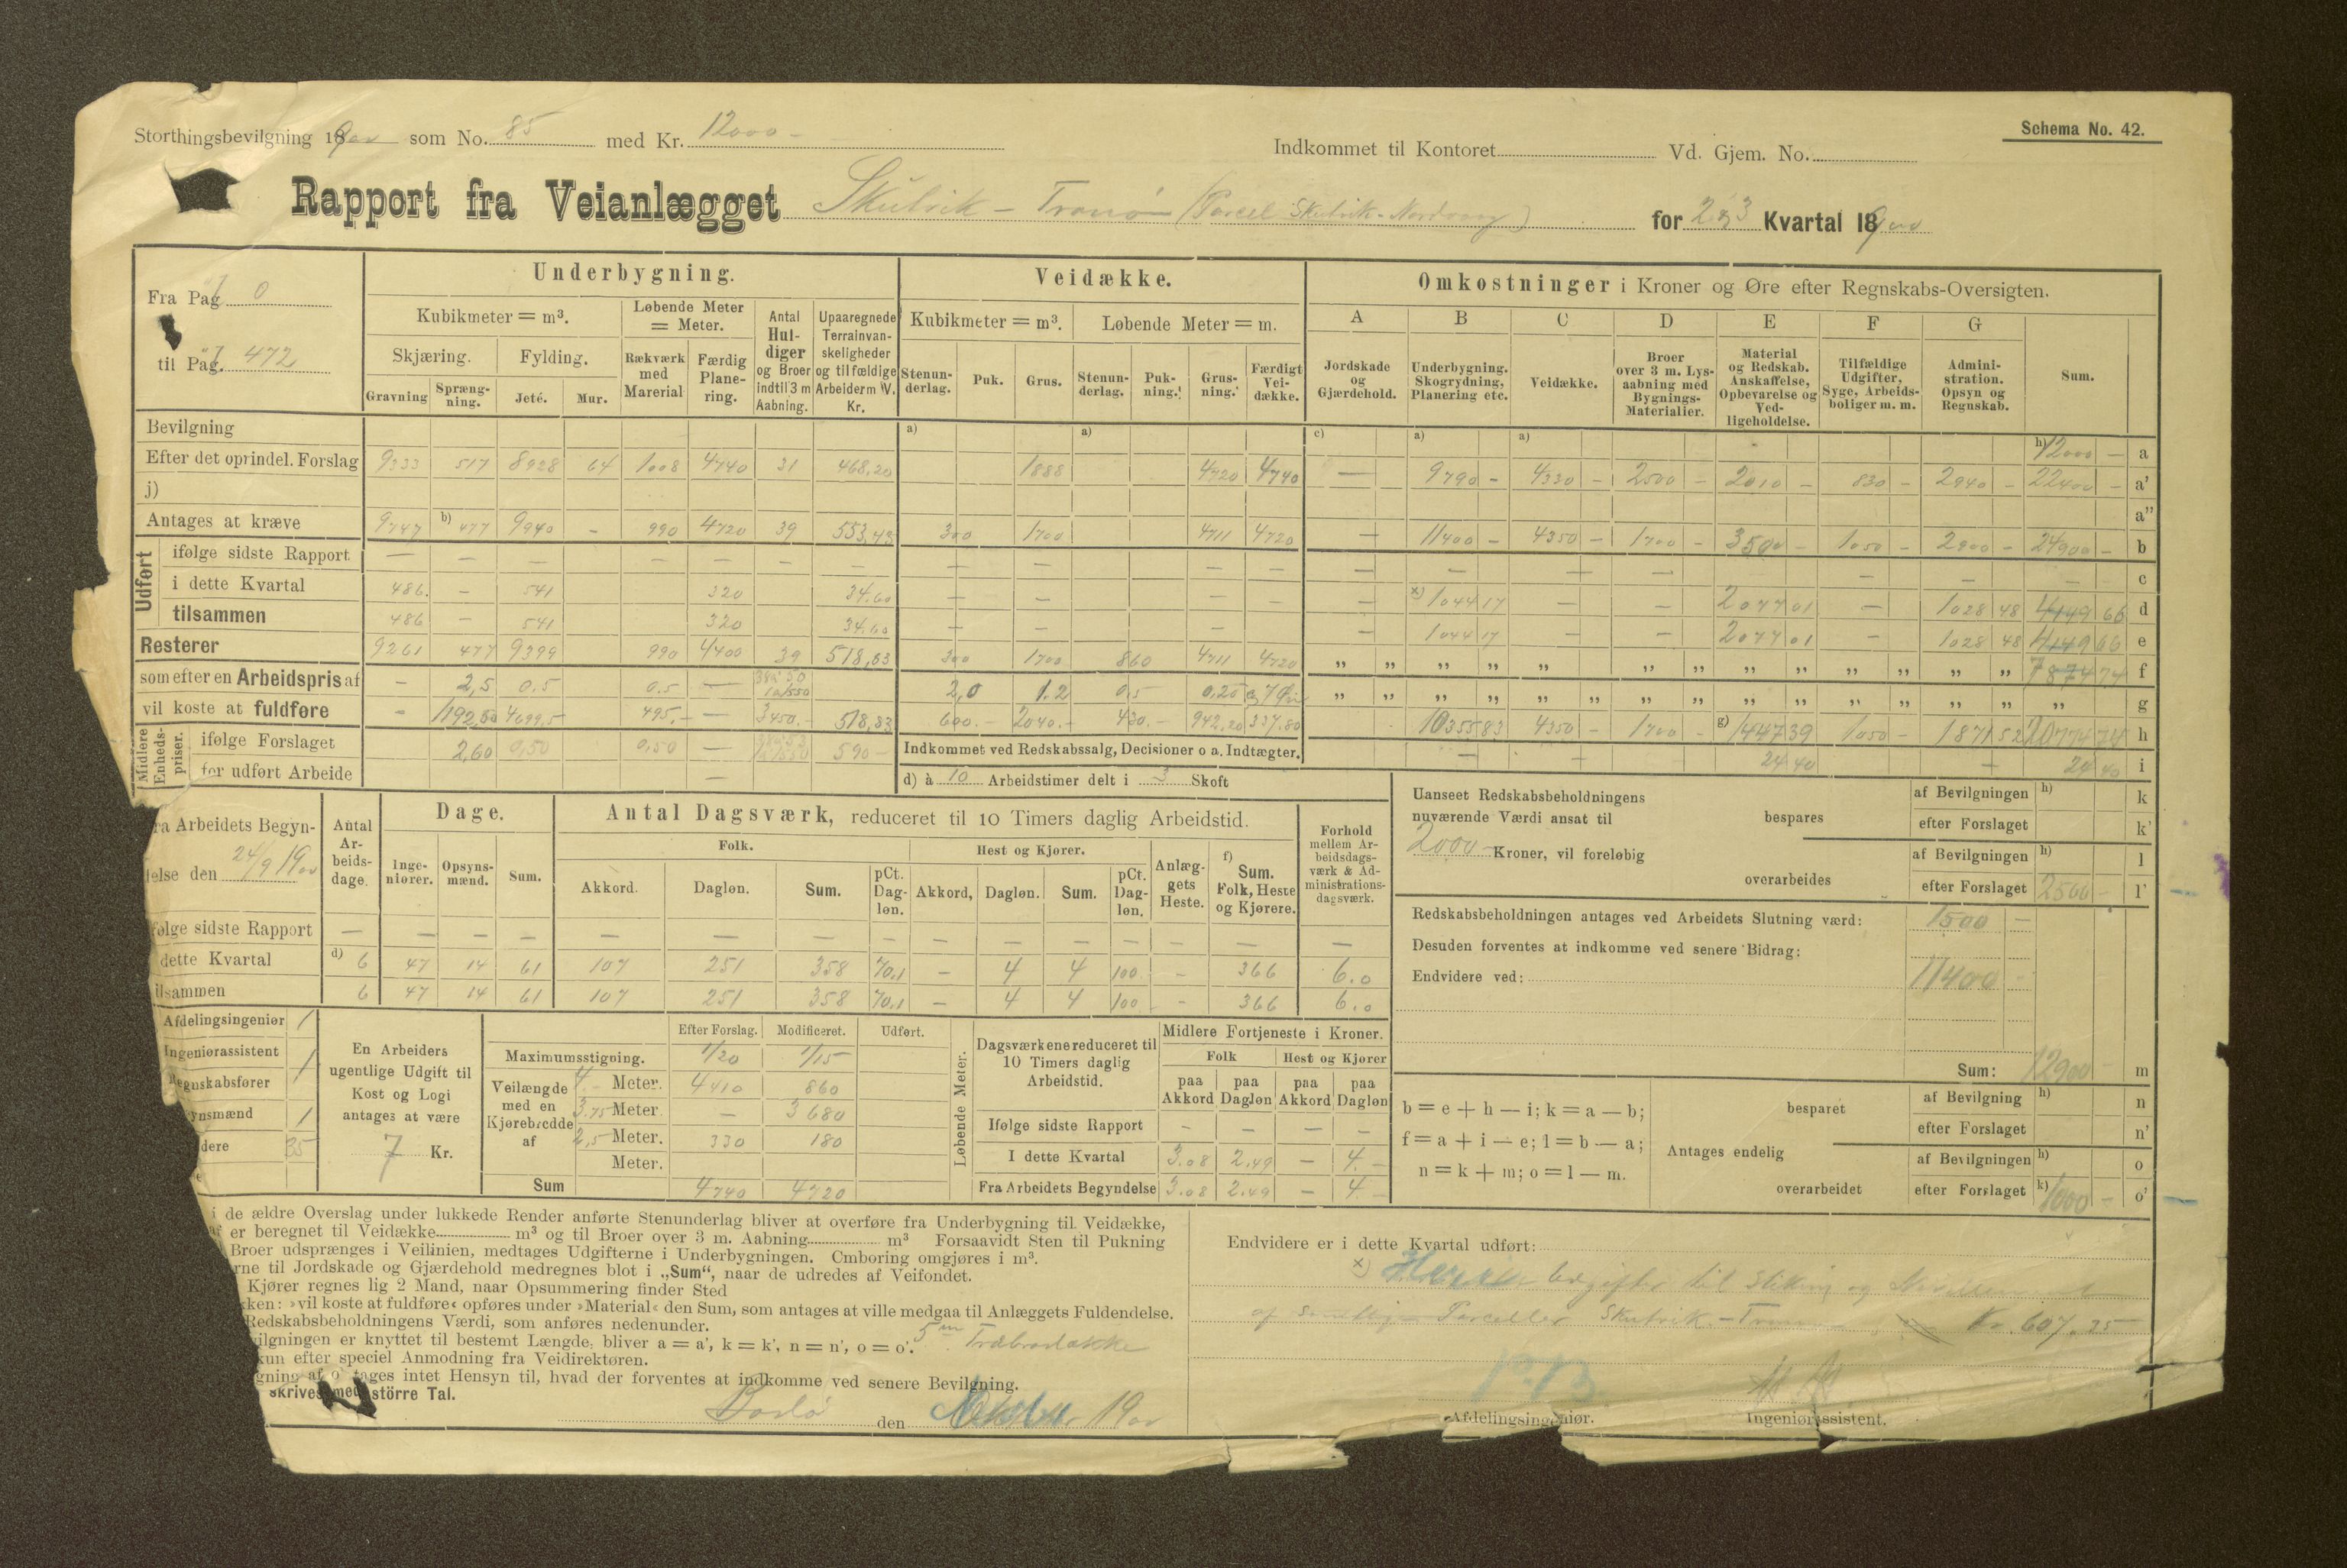 Schema No. 42.
Storthingsbevilgning 1900 som No. 85 med Kr. 12000 -
Indkommet til Kontoret Vd. Gjem. No.
Rapport fra Veianlægget Skutvik - Tranø (Parcel Skutvik - Nordvaag) for 2 og 3 Kvartal 1900
Fra Pag. 0
til Pag. 472
Underbygning.
Kubikmeter = m³. Løbende Meter = Meter.
Skjæring. Fylding.
Gravning Sprængning. Jeté. Mur. Rækværk med Marerial Færdig Planering. Antal Huldiger og Broer indtil 3 m Aabning. Upaaregnede Terrainvanskeligheder og tilfældige Arbeider m. V. Kr.
Veidække.
Kubikmeter = m³. Løbende Meter = m.
Stenunderlag. Puk. Grus. Stenunderlag. Pukning. Grusning. Færdigt Veidække.
Omkostninger i Kroner og Øre efter Regnskabs-Oversigten.
A B C D E F G
Jordskade og Gjærdehold. Underbygning. Skogrydning, Planering etc. Veidække. Broer over 3 m. Lysaabning med Bygnings-Materialier. Material og Redskab. Anskaffelse, Opbevarelse og Vedligeholdelse. Tilfældige Udgifter, Syge, Arbeidsboliger m. m. Administration. Opsyn og Regnskab. Sum.
Bevilgning a) a) c) a) a) h) 12000 - a
Efter det oprindel. Forslag 9333 517 8928 64 1008 4740 31 468,20 1888 4720 4740 — 9790 - 4330 - 2500 - 2010 - 830 - 2940 - 22400 - a'
j) a''
Antages at kræve 9747 b) 477 9940 - 990 4720 39 553,43 300 1700 4711 4720 — 11400 - 4350 - 1700 - 3500 - 1050 - 2900 - 24900 - b
Udført
ifølge sidste Rapport — — — — — — — — — — — — — — — — — — — c
i dette Kvartal 486. - 541 320 34.60 — — — — — x) 1044 17 — — 2077 01 — 1028 48 4149 66 d
tilsammen 486 - 541 320 34.60 — — — — 1044 17 — — 2077 01 — 1028 48 4149 66 e
Resterer 9261 477 9399 990 4400 39 518,83 300 1700 860 4711 4720 „ „ „ „ „ „ „ „ „ „ „ „ „ 7874 74 f
som efter en Arbeidspris af - 2,5 0.5 0.5 — 2,0 1.2 0,5 0.20 „ „ „ „ „ „ „ „ „ „ „ „ „ „ g
vil koste at fuldføre - 1192,50 4699,5 495,- — 3450.- 518,83 600.- 2040.- 430.- 942,20 337,80 10355 83 4350 - 1700 - g) 1447 39 1050 - 1871 52 20774 74 h
Midlere Enhedspriser.
ifølge Forslaget 2,60 0,50 0,50 — 590 - Indkommet ved Redskabssalg, Decisioner o a. Indtægter. — — 24 40 — 24 40 i
for udført Arbeide — d) à 10 Arbeidstimer delt i 3 Skoft
Uanseet Redskabsbeholdningens nuværende Værdi ansat til 2000 - Kroner, vil foreløbig
bespares af Bevilgningen h) k
efter Forslaget k'
overarbeides af Bevilgningen h) l
efter Forslaget 2500 - l'
Redskabsbeholdningen antages ved Arbeidets Slutning værd: 1500 —
Desuden forventes at indkomme ved senere Bidrag:
Endvidere ved: 11400 -
Sum: 12900 - m
b = e + h — i; k = a — b;
f = a + i — e; l = b — a;
n = k + m; o = l — m.
Antages endelig
besparet af Bevilgning h) n
efter Forslaget n'
overarbeidet af Bevilgningen h) o
efter Forslaget k) 1000 - o'
ra Arbeidets Begyn-
else den 24/9 1900
Antal Arbeidsdage. Dage. Antal Dagsværk, reduceret til 10 Timers daglig Arbeidstid. Forhold mellem Arbeidsdagsværk & Administrationsdagsværk.
Ingeniører. Opsynsmænd. Sum. Folk. Hest og Kjører. Anlæggets Heste. f) Sum. Folk, Heste og Kjørere.
Akkord. Dagløn. Sum. pCt. Dagløn. Akkord, Dagløn. Sum. pCt. Dagløn.
følge sidste Rapport — — — — — — — — — — — — — — —
dette Kvartal d) 6 47 14 61 107 251 358 70.1 — 4 4 100. - 366 6.0
ilsammen 6 47 14 61 107 251 358 70.1 — 4 4 100 - 366 6.0
Afdelingsingeniør 1
Ingeniørassistent 1
Regnskabsfører
ynsmænd 1
dere 35
En Arbeiders ugentlige Udgift til Kost og Logi antages at være 7 Kr.
Efter Forslag. Modificeret. Udført.
Maximumsstigning. 1/20 1/15
Veilængde med en Kjørebredde af
4.- Meter. 4410 860
3.75 Meter — 3680
2,5 Meter. 330 180
Meter.
Sum 4740 4720
Løbende Meter.
Dagsværkene reduceret til 10 Timers daglig Arbeidstid. Midlere Fortjeneste i Kroner.
Folk Hest og Kjører
paa Akkord paa Dagløn paa Akkord paa Dagløn
Ifølge sidste Rapport — — — —
I dette Kvartal 3.08 2.49 — 4.-
Fra Arbeidets Begyndelse 3.08 2.49 — 4.-
i de ældre Overslag under lukkede Render anførte Stenunderlag bliver at overføre fra Underbygning til Veidække,
af er beregnet til Veidække m³ og til Broer over 3 m. Aabning m³ Forsaavidt Sten til Pukning
Broer udsprænges i Veilinien, medtages Udgifterne i Underbygningen. Omboring omgjøres i m³.
rne til Jordskade og Gjærdehold medregnes blot i „Sum“, naar de udredes af Veifondet.
Kjører regnes lig 2 Mand, naar Opsummering finder Sted
ken: »vil koste at fuldføre« opføres under »Material« den Sum, som antages at ville medgaa til Anlæggets Fuldendelse.
Redskabsbeholdningens Værdi, som anføres nedenunder.
vilgningen er knyttet til bestemt Længde, bliver a = a', k = k', n = n', o = o'.
kun efter speciel Anmodning fra Veidirektøren.
gning af o' tages intet Hensyn til, hvad der forventes at indkomme ved senere Bevilgning.
skrives med større Tal.
Bodø den Oktober 1900
Endvidere er i dette Kvartal udført:
x) Heraf Udgifter til Stikning og Nivellement
af samtlige Parceller Skutvik - Tranø Kr. 607.35
Afdelingsingeniør. Ingeniørassistent.